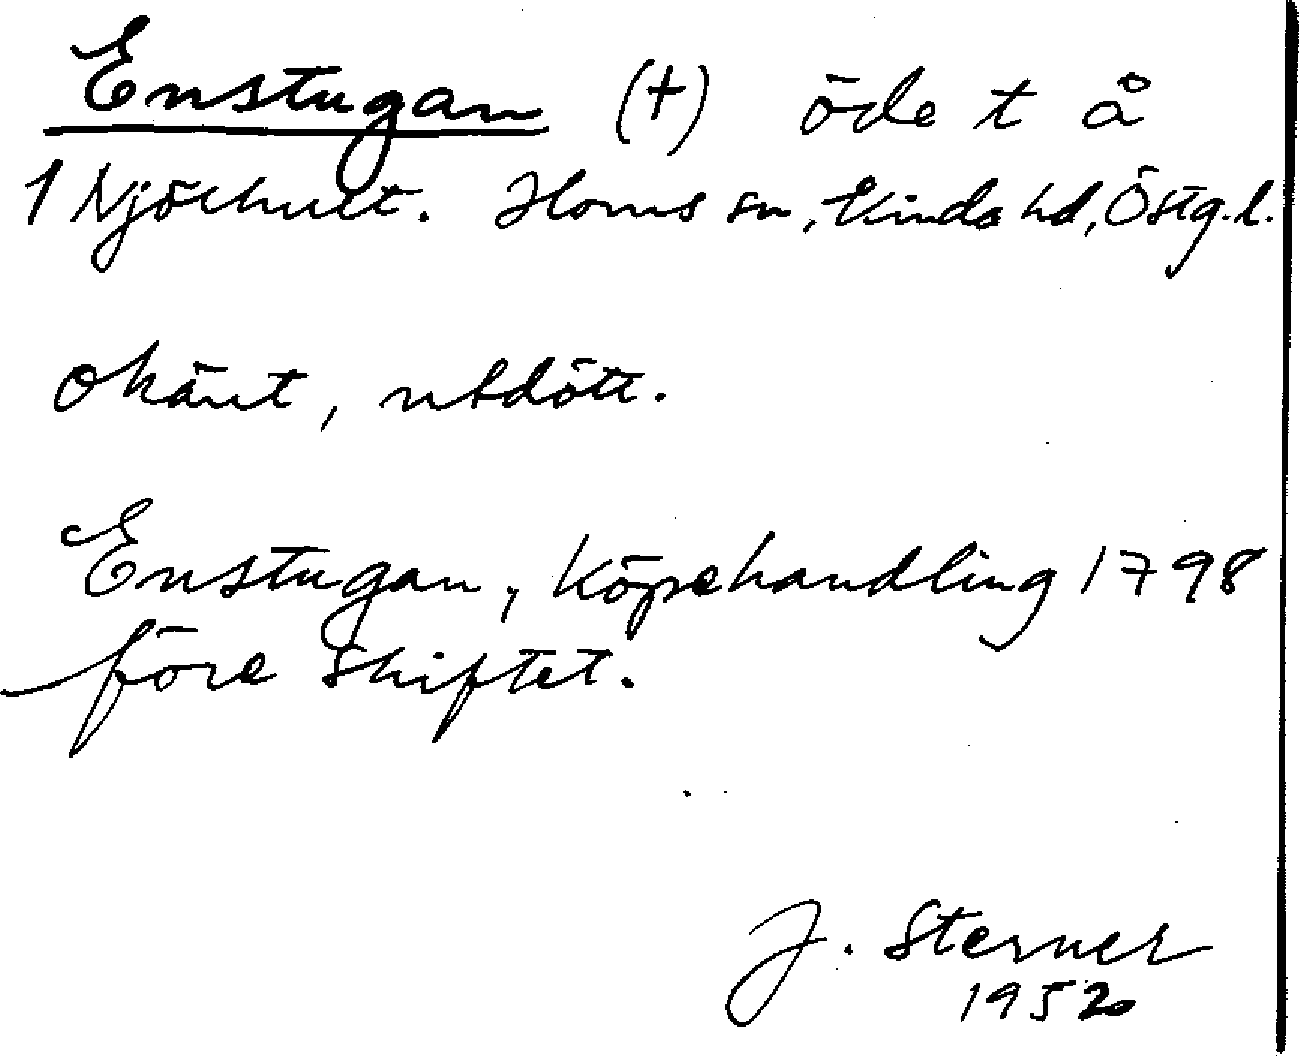 Enstugan (†) öde t å
1 Njölhult. Horns sn, Kinda hd, Östg.l.
okänt, utdött.
Enstugan, Köpehandling 1798
före skiftet.
J. Sterner
1952